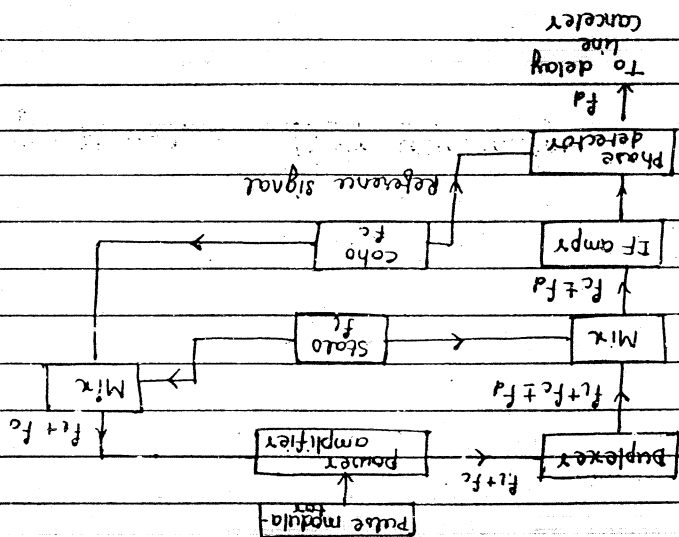 Pulse modula-
tor
Duplexer
fl + fc
power
amplifier
fl + fc
fl + fc ± fd
Mix
Stalo
fl
Mix
fc ± fd
IF ampr
Coho
fc
Reference signal
Phase
detector
fd
To delay
line
Canceler